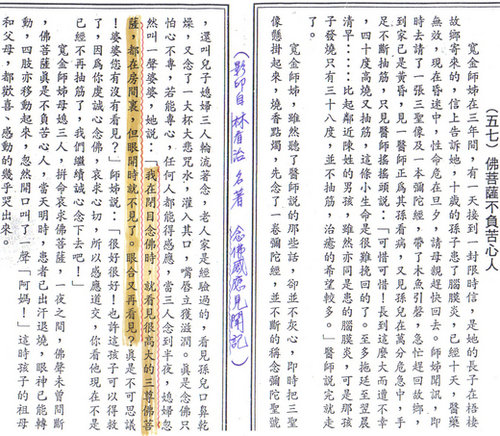 (五七) 佛菩薩不負苦心人
寬金師姊在三年間,有一天接到一封限時信,是她的長子在梧棲
故鄉寄來的,信上告訴她,十歲的孫子患了腦膜炎,已經十天,醫藥
無效,現在昏迷中,性命危在旦夕,請母親趕快回去。師姊聞訊,即
時去請了一張三聖像及一本彌陀經,帶了木魚引磬,急忙趕回故鄉,
到家已是黃昏,見一醫師正為其孫看病,又見孫兒在萬分危急中,手
足不斷抽筋,只見醫師搖搖頭說:「可惜可惜!長到這麼大而遭不幸
,四十度高燒又抽筋,這條小生命是很難挽回的了。至多拖延至翌晨
清早……比起鄰近陳姓的男孩,雖然亦同是患的腦膜炎,可是那孩
子發燒只有三十八度,並不抽筋,治癒的希望較多。」醫師說完就走
了。
寬金師姊,雖然聽了醫師說的那些話,卻並不灰心,即時把三聖
像懸掛起來,燒香點燭,先念了一卷彌陀經,並不斷的稱念彌陀聖號
(影印自 林看治 名著 念佛感應見聞記)
,還叫兒子媳婦三人輪流著念,老人家是經驗過的,看見孫兒口鼻乾
燥,又念了一大杯大悲咒水,灌入其口,嘴唇立獲滋潤。真是念佛只
怕心不專,若能專心,任何人都能得感應,當三人念到半夜,媳婦忽
然叫一聲婆婆,她說:「我在閉目念佛時,就看見很高大的三尊佛菩
薩,都在房間裏,但眼開時就不見了。眼合又再看見?真是不可思議
!婆婆您有沒有看見?」師姊說:「很好很好!也許這孩子可以得救
了,因為你虔誠心念佛,哀求心切,所以感應道交,你看他現在不是
已經不再抽筋了,我們繼續誠心念下去吧!」
寬金師姊母媳三人,拚命哀求佛菩薩,一夜之間,佛聲未曾間斷
,佛菩薩真是不負苦心人,當天明時,患者已出汗退燒,眼神已能轉
動,四肢亦移動起來,忽然開口叫了一聲「阿媽!」這時孩子的祖母
和父母,都歡喜、感動的幾乎哭出來。